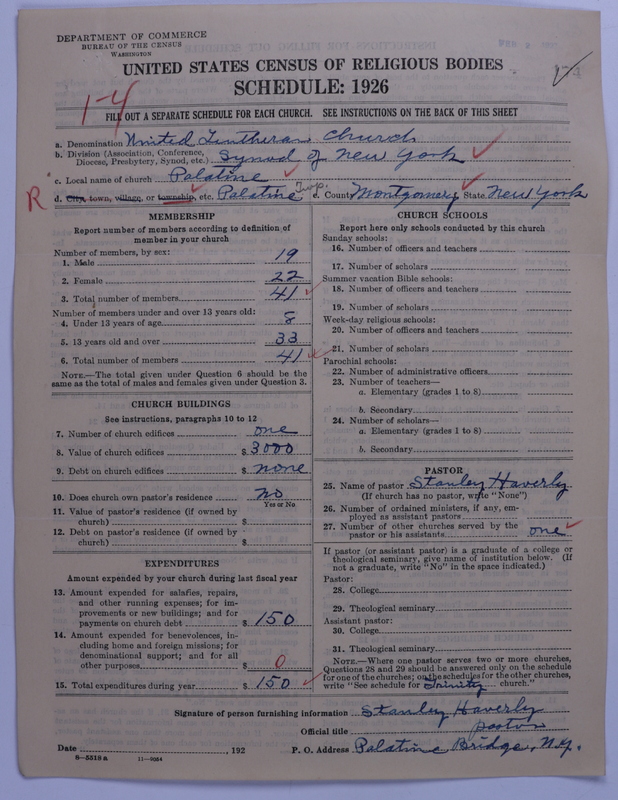 DEPARTMENT OF COMMERCE
BUREAU OF THE CENSUS
WASHINGTON
UNITED STATES CENSUS OF RELIGIOUS BODIES
SCHEDULE: 1926
1-4
FILL OUT A SEPARATE SCHEDULE FOR EACH CHURCH. SEE INSTRUCTIONS ON THE BACK OF THIS SHEET
a. Denomination United Lutheran Church
b. Division (Association, Conference, Diocese, Presbytery, Synod, etc.) Synod of New York
c. Local name of church Palatine
R d. City, town, village, or township, etc. Palatine Twp. e. County Montgomery State New York
MEMBERSHIP
Report number of members according to definition of
member in your church
Number of members, by sex:
1. Male 19
2. Female 22
3. Total number of members 41
Number of members under and over 13 years old:
4. Under 13 years of age 8
5. 13 years old and over 33
6. Total number of members 41
NOTE.—The total given under Question 6 should be
same as the total of males and females given under Question 3.
CHURCH BUILDINGS
See instructions, paragraphs 10 to 12
7. Number of church edifices one
8. Value of church edifices $ 3000
9. Debt on church edifices $ none
10. Does church own pastor's residence no
Yes or No
11. Value of pastor's residence (if owned by
church) $
12. Debt on pastor's residence (if owned by
church) $
EXPENDITURES
Amount expended by your church during last fiscal year
13. Amount expended for salaries, repairs,
and other running expenses; for im-
provements or new buildings; and for
payments on church debt $ 150
14. Amount expended for benevolences, in-
cluding home and foreign missions; for
denominational support; and for all
other purposes $ 0
15. Total expenditures during year $ 150
CHURCH SCHOOLS
Report here only schools conducted by this church
Sunday schools:
16. Number of officers and teachers
17. Number of scholars
Summer vacation Bible schools:
18. Number of officers and teachers
19. Number of scholars
Week-day religious schools:
20. Number of officers and teachers
21. Number of scholars
Parochial schools:
22. Number of administrative officers
23. Number of teachers—
a. Elementary (grades 1 to 8)
b. Secondary
24. Number of scholars—
a. Elementary (grades 1 to 8)
b. Secondary
PASTOR
25. Name of pastor Stanley Haverly
(If church has no pastor, write "None")
26. Number of ordained ministers, if any, em-
ployed as assistant pastors
27. Number of other churches served by the
pastor or his assistants one
If pastor (or assistant pastor) is a graduate of a college or
theological seminary, give name of institution below. (If
not a graduate, write "No" in the space indicated.)
Pastor:
28. College
29. Theological seminary
Assistant pastor:
30. College
31. Theological seminary
NOTE.—Where one pastor serves two or more churches,
Questions 28 and 29 should be answered only on the schedule
for one of the churches; on the schedules for the other churches,
write "See schedule for Trinity church."
Signature of person furnishing information Stanley Haverly
Official title pastor
Date , 192 P. O. Address Palatine Bridge, N.Y.
8-5518 a 11-9054